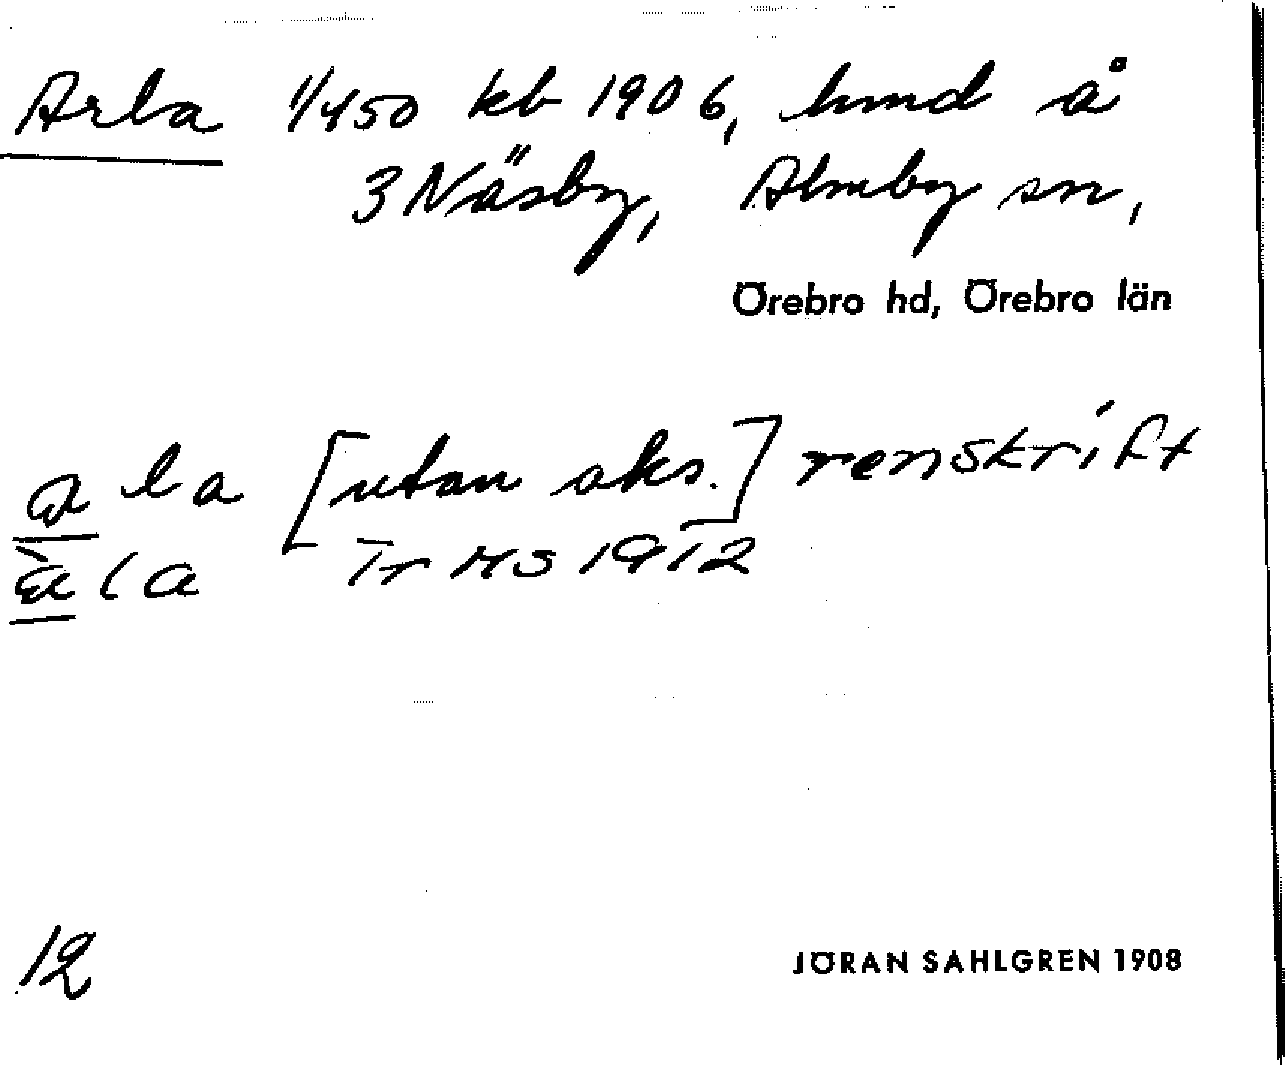 Arla 1/450 kb 1906, hmd å
3 Näsby, Almby sn,
Örebro hd, Örebro län
a la [utan aks.] renskrift
à la Tr MS 1912
12
JÖRAN SAHLGREN 1908